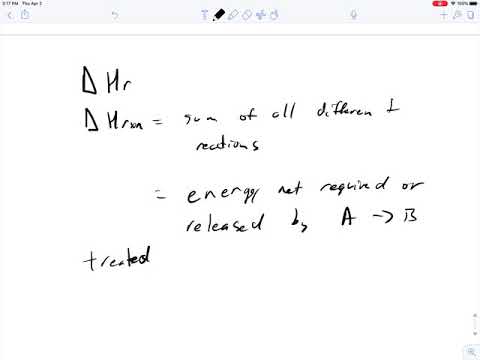 3:17 PM Thu Apr 2
100%
Δ Hr
Δ Hrxn = sum of all different
reactions
= energy net required or
released by A → B
treated